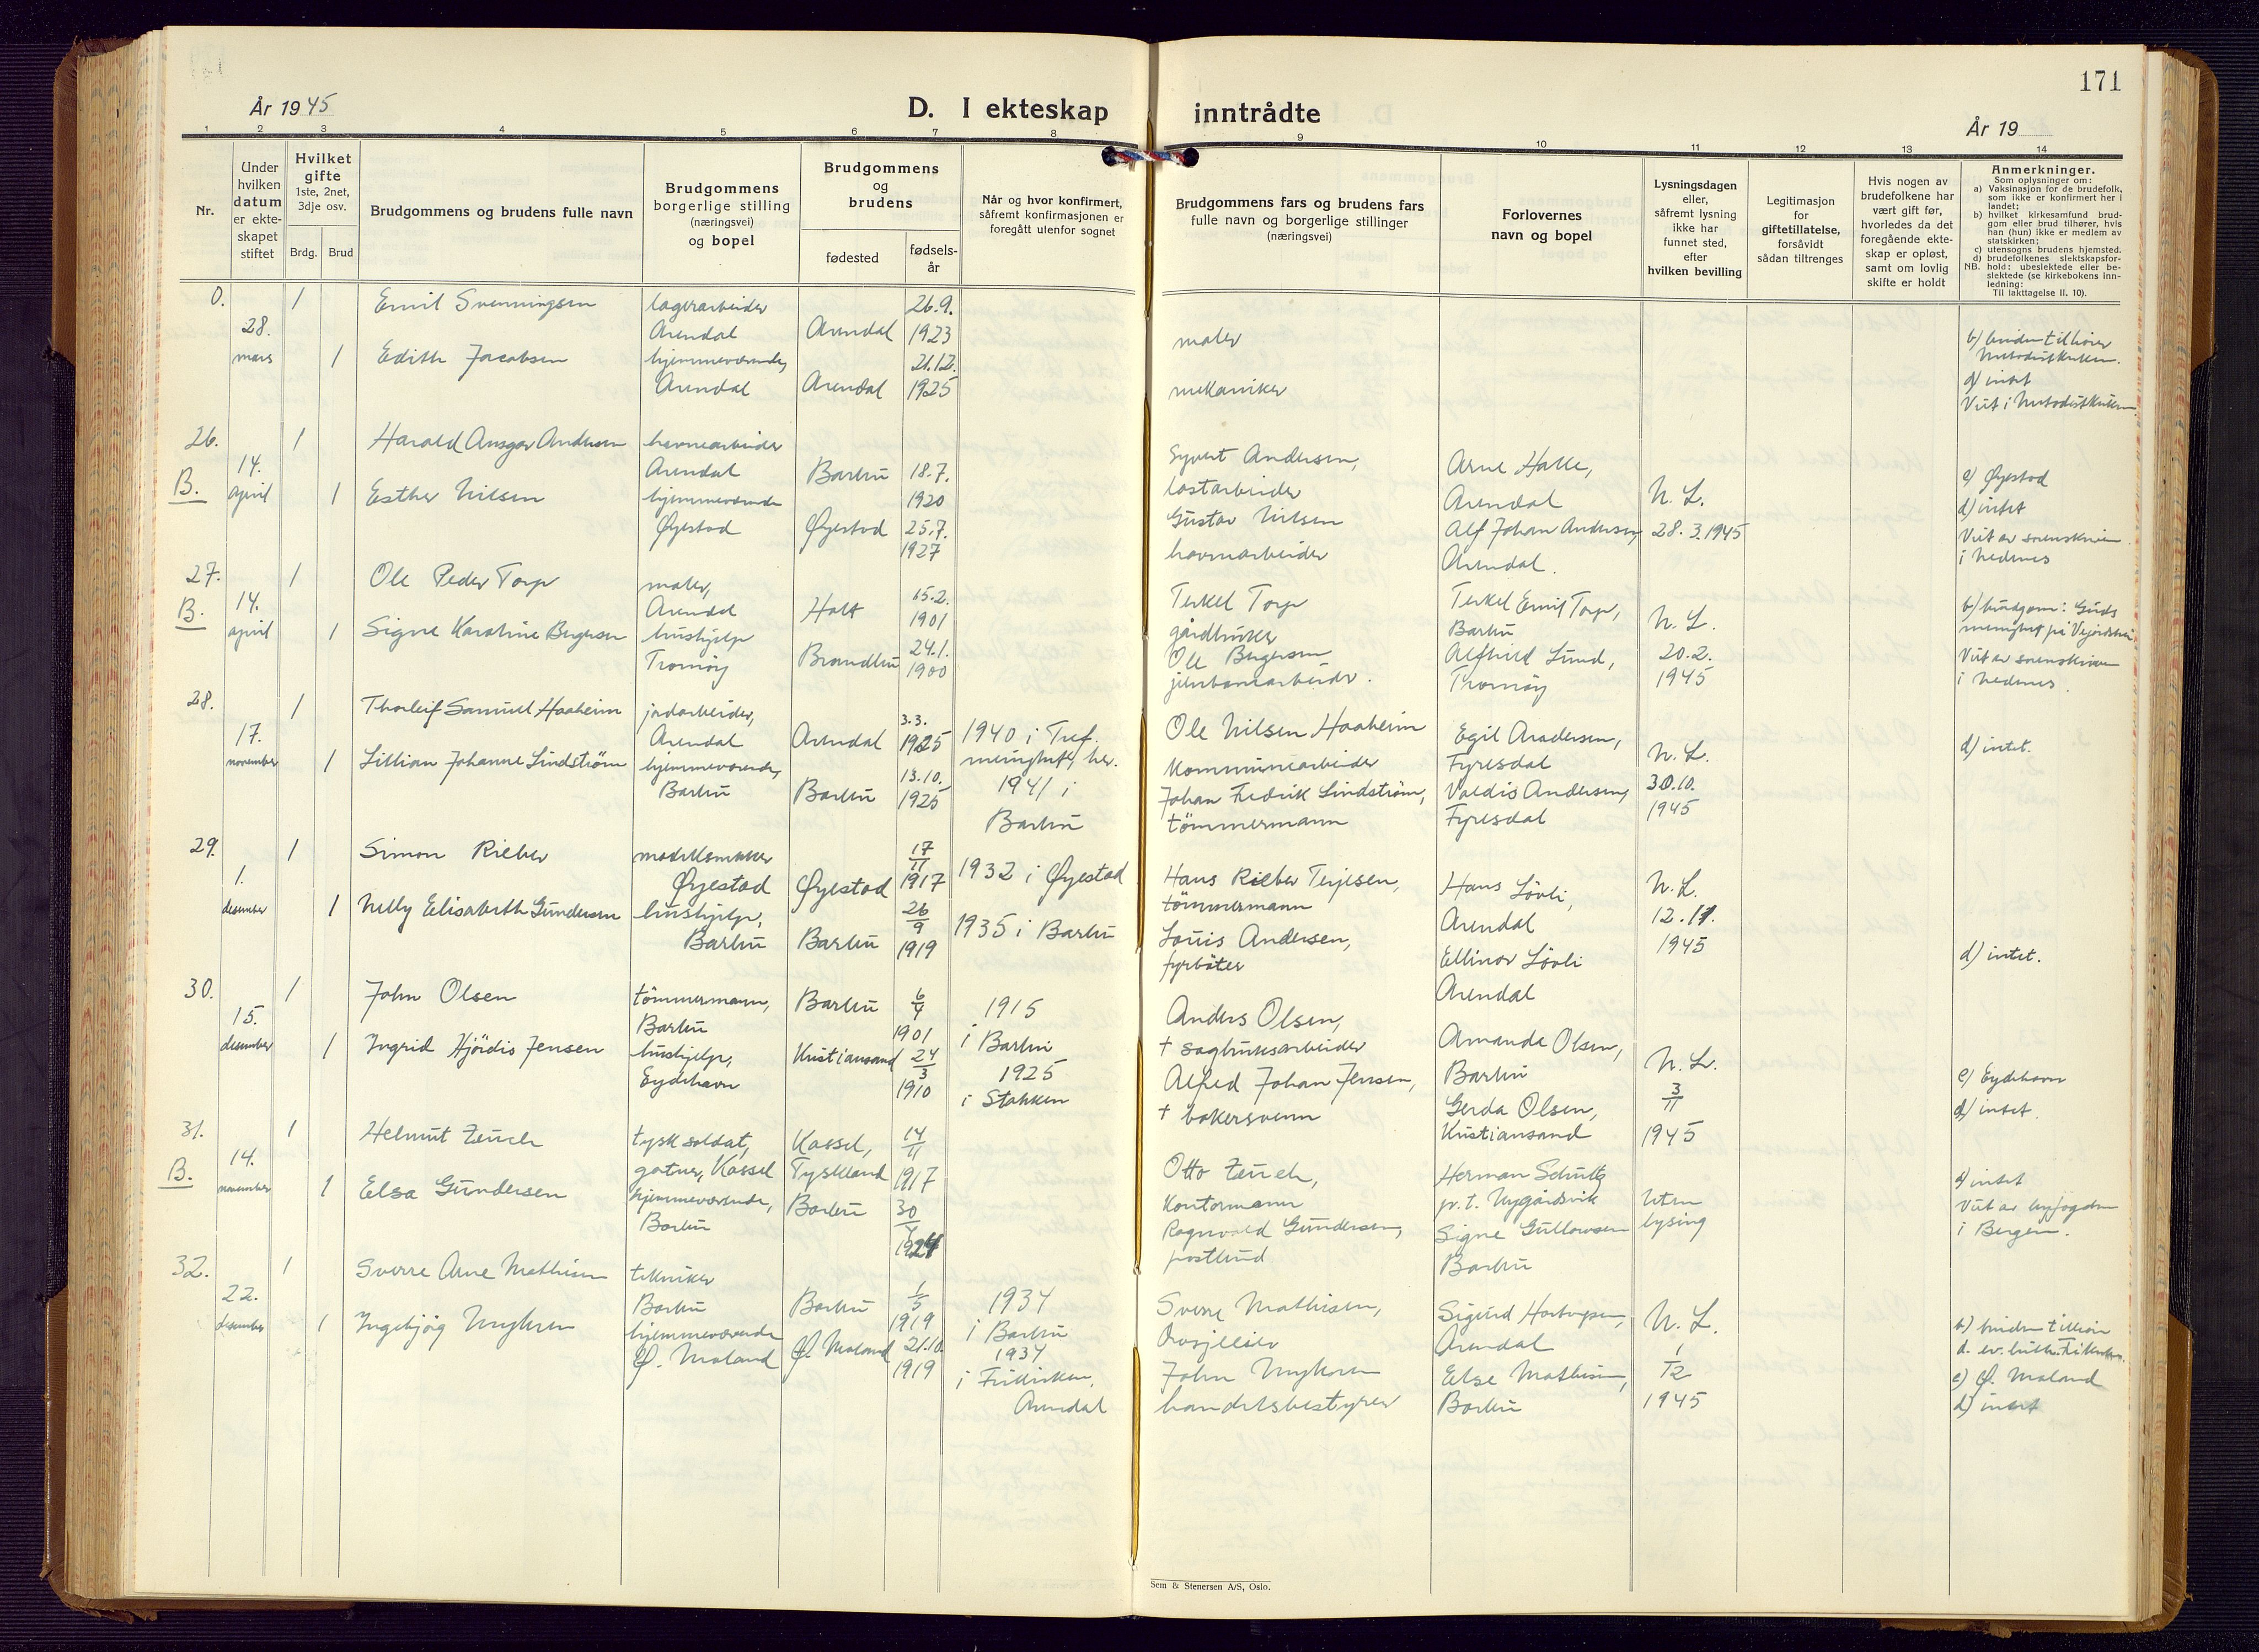 171
År 1945
D. I ekteskap inntrådte
År 19
1 2 3 4 5 6 7 8 9 10 11 12 13 14
Nr.
Under
hvilken
datum
er ekte-
skapet
stiftet
Hvilket
gifte
1ste, 2net,
3dje osv.
Brdg. Brud
Brudgommens og brudens fulle navn
Brudgommens
borgerlige stilling
(næringsvei)
og bopel
Brudgommens
og
brudens
fødested
fødsels-
år
Når og hvor konfirmert,
såfremt konfirmasjonen er
foregått utenfor sognet
Brudgommens fars og brudens fars
fulle navn og borgerlige stillinger
(næringsvei)
Forlovernes
navn og bopel
Lysningsdagen
eller,
såfremt lysning
ikke har
funnet sted,
efter
hvilken bevilling
Legitimasjon
for
giftetillatelse,
forsåvidt
sådan tiltrenges
Hvis nogen av
brudefolkene har
vært gift før,
hvorledes da det
foregående ekte-
skap er opløst,
samt om lovlig
skifte er holdt
Anmerkninger.
Som oplysninger om:
a) Vaksinasjon for de brudefolk,
som ikke er konfirmert her i
landet;
b) hvilket kirkesamfund brud-
gom eller brud tilhører, hvis
han (hun) ikke er medlem av
statskirken;
c) utensogns brudens hjemsted.
d) brudefolkenes slektskapsfor-
NB. hold: ubeslektede eller be-
slektede (se kirkebokens inn-
ledning:
Til iakttagelse II. 10).
0.
28.
mars
1
1
Emil Svenningsen
Edith Jacobsen
lagerarbeider
Arendal
hjemmeværende,
Arendal
Arendal
Arendal
26.9.
1923
21.12.
1925
maler
mekaniker
b) bruden tilhører
Metodistkirken.
d) intet
Viet i Metodistkirken
26.
B.
14.
april
1
1
Harald Ansgar Andersen
Esther Nilsen
havnearbeider
Arendal
hjemmeværende
Øyestad
Barbu
Øyestad
18.7.
1920
25.7.
1927
Syvert Andersen,
lastarbeider
Gustav Nilsen
havnearbeider
Arne Halle,
Arendal
Alf Johan Andersen,
Arendal.
N. L.
28. 3. 1945
c) Øyestad
d) intet
Viet av sorenskriveren
i Nedenes
27.
B.
14.
april
1
1
Ole Peder Torp
Signe Karoline Bergersen
maler,
Arendal
hushjelp
Tromøy
Holt
Brandbu
15.2.
1901
24.1.
1900
Terkel Torp
gårdbruker
Ole Bergersen
jernbanearbeider.
Terkel Emil Torp,
Barbu
Alfhild Lund,
Tromøy
N. L.
20.2.
1945
b) brudgom: Guds
menighet på Vegårdshei
Viet av sorenskriveren
i Nedenes.
28.
17.
november
1
1
Thorleif Samuel Haaheim
Lillian Johanne Lindstrøm
jordarbeider,
Arendal
hjemmeværende,
Barbu
Arendal
Barbu
3.3.
1925
13.10.
1925
1940 i Tref.
menighet, her.
1941 i
Barbu
Ole Nilsen Haaheim
kommunearbeider
Johan Fredrik Lindstrøm,
tømmermann
Egil Andersen,
Fyresdal
Valdis Andersen,
Fyresdal
N. L.
30.10.
1945
d) intet.
29.
1.
desember
1
1
Simon Rieber
Nelly Elisabeth Gundersen
Øyestad
hushjelp,
Barbu
Øyestad
Barbu
17/11
1917
26/9
1919
1932 i Øyestad
1935 i Barbu
Hans Rieber Terjesen,
tømmermann
Louis Andersen,
fyrbøter
Hans Løvli,
Arendal
Ellinor Løvli
Arendal
N. L.
12.11.
1945
d) intet.
30.
15.
desember
1
1
John Olsen
Ingrid Hjördis Jensen
tømmermann,
Barbu
hushjelp,
Eydehavn
Barbu
Kristiansand
6/4
1901
24/3
1910
1915
i Barbu
1925
i Stokken
Anders Olsen,
† sagbruksarbeider
Alfred Johan Jensen,
† bakersvenn
Amanda Olsen,
Barbu
Gerda Olsen,
Kristiansand
N. L.
3/11
1945
c) Eydehavn
d) intet.
31.
B.
14.
november
1
1
Helmut Zeuch
Elsa Gundersen
tysk soldat,
gartner, Kassel
hjemmeværende,
Barbu
Kassel,
Tyskland
Barbu
14/11
1917
30
1924
Otto Zeuch,
Kontormann
Ragnvald Gundersen,
postbud
Herman Schultz
p.t. Nygårdsvik
Signe Gullowsen
Barbu
Uten
lysing
d) intet
Viet av byfogden
i Bergen.
32.
22.
desember
1
1
Sverre Arne Mathisen
Ingebjørg Nykren
tekniker
Barbu
hjemmeværende
Ø. Moland
Barbu
Ø. Moland
1/5
1919
21.10.
1919
1934
i Barbu
1934
i Frikirken,
Arendal
Sverre Mathisen,
John Nykren
handelsbestyrer
Arendal
Else Mathisen,
Barbu
N. L.
1/12
1945
b) bruden tilhører
d. ev. luth. Frikirken.
c) Ø. Moland
d) intet
Sem & Stenersen A/S, Oslo.